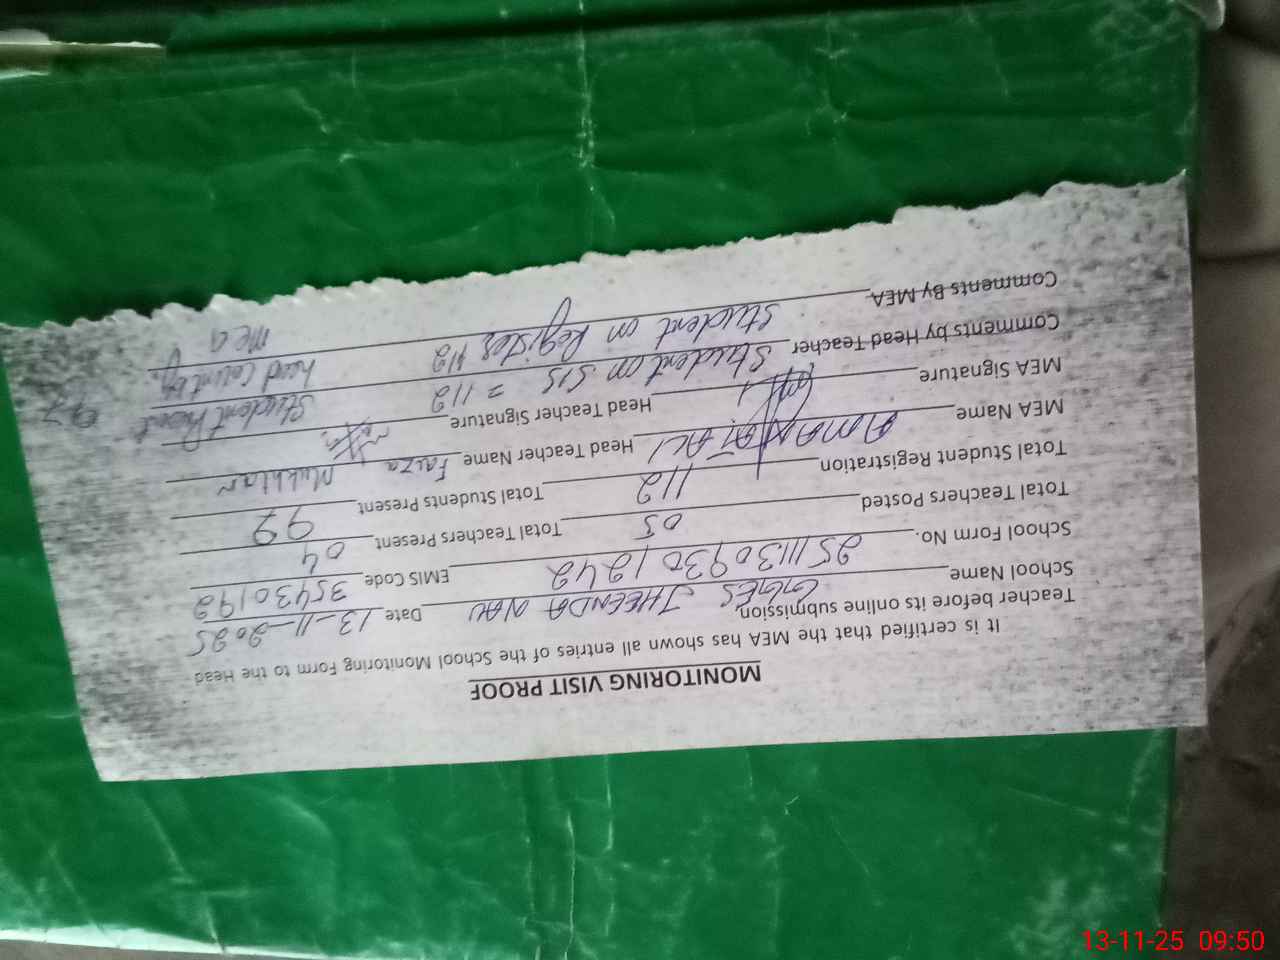 MONITORING VISIT PROOF
It is certified that the MEA has shown all entries of the School Monitoring Form to the Head
Teacher before its online submission.
School Name GGES JHEENDA NAU Date 13-11-2025
School Form No. 25111309301242 EMIS Code 35430192
Total Teachers Posted 05 Total Teachers Present 04
Total Student Registration 112 Total Students Present 97
MEA Name AMANAT ALI Head Teacher Name Faiza Mukhtar
MEA Signature Head Teacher Signature
Comments by Head Teacher Student on SIS = 112 Student Present 97
Comments By MEA Student on Register 112 head count by MEA
13-11-25 09:50